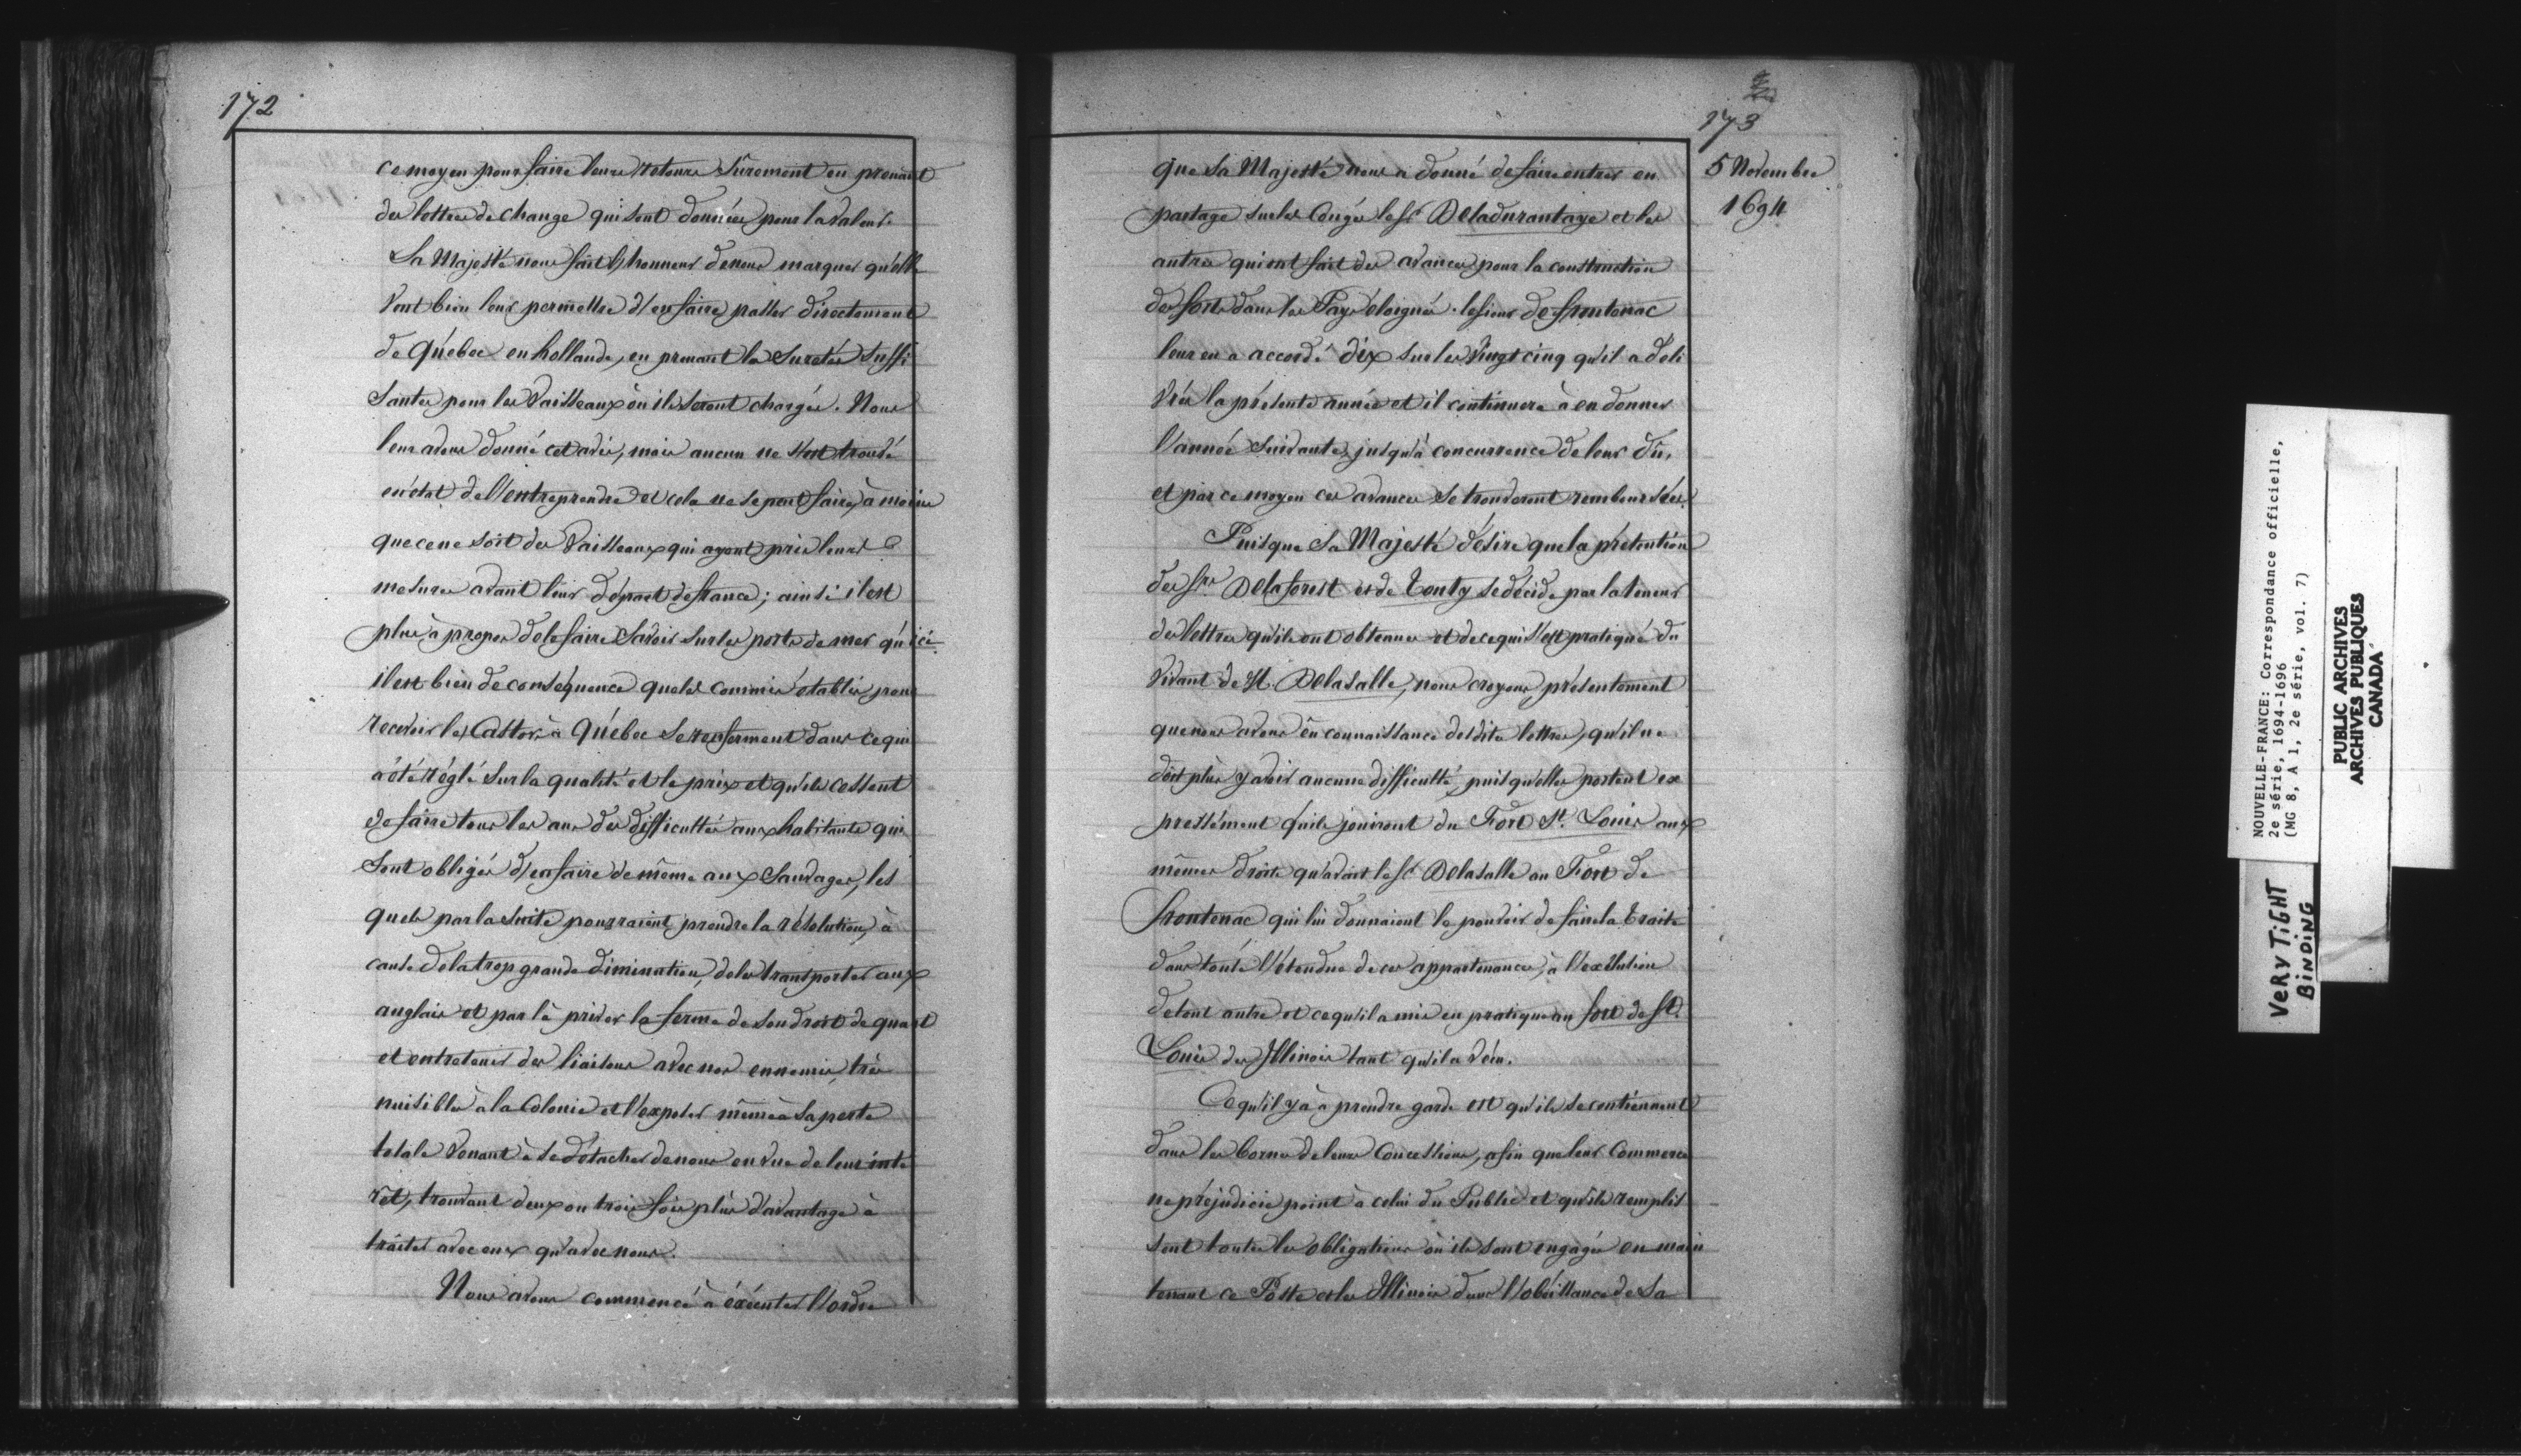 172
ce moyen pour faire leurs retours sûrement en prenant
des lettres de change qui sont données pour la valeur.
Sa Majesté nous fait l'honneur de nous marquer qu'elle
veut bien leur permettre d'en faire passer directement
de Québec en hollande, en prenant les suretés suffi
santes pour les vaisseaux où ils seront chargés. Nous
leur avons donné cet avis, mais aucun ne s'est trouvé
en état de l'entreprendre et cela ne se peut faire, à moins
que ce ne soit des vaisseaux qui ayent pris leurs
mesures avant leur départ de france; ainsi il est
plus à propos de le faire savoir sur les ports de mer qu'ici
il est bien de conséquence que les commis établis pour
recevoir les Castors à Québec se renferment dans ce qui
a été réglé sur la qualité et le prix et qu'ils cessent
de faire tous les ans des difficultés aux habitants qui
sont obligés d'en faire de même aux Sauvages, les
quels par la suite pourraient prendre la résolution, à
cause de la trop grande diminution, de les transporter aux
anglais et par là priver la ferme de son droit de quart
et entretenir des liaisons avec nos ennemis, très
nuisibles à la Colonie et l'exposer même à sa perte
totale venant à se détacher de nous en vue de leur inté
rêt, trouvant deux ou trois fois plus d'avantage à
traiter avec eux qu'avec nous.
Nous avons commencé à éxécuter l'ordre
173
5 Novembre
1694
que Sa Majesté nous a donné de faire entrer en
partage sur les Congés le Sr. De la durantaye et les
autres qui ont fait des avances pour la construction
des forts dans les Pays éloignés. le sieur de frontenac
leur en a accordé dix sur les vingt cinq qu'il a déli
vrés la présente année et il continuera à en donner
l'année suivante, jusqu'à concurrence de leur dû,
et par ce moyen ces avances se trouveront remboursées.
Puisque Sa Majesté désire que la prétention
des Srs. De la forest et de Tonty se décide par la teneur
des lettres qu'ils ont obtenues et de ce qui s'est pratiqué du
vivant de M. De la Salle, nous croyons présentement
que nous avons eu connaissance desdites lettres, qu'il ne
doit plus y avoir aucune difficulté, puisqu'elles portent ex
pressément qu'ils jouiront du Fort St. Louis aux
mêmes droits qu'avait le Sr. De la Salle au Fort de
frontenac qui lui donnaient le pouvoir de faire la traite
dans toute l'étendue de ces appartenances, à l'exclusion
de tout autre et ce qu'il a mis en pratique au fort de St.
Louis des Illinois tant qu'il a vécu.
Ce qu'il y a à prendre garde est qu'ils se contiennent
dans les bornes de leurs Concessions, afin que leur Commerce
ne préjudicie point à celui du Public et qu'ils remplis
sent toutes les obligations où ils sont engagés en main
tenant ce Poste et les Illinois dans l'obéissance de Sa
NOUVELLE-FRANCE: Correspondance officielle,
2e série, 1694-1696
(MG 8, A 1, 2e série, vol. 7)
PUBLIC ARCHIVES
ARCHIVES PUBLIQUES
CANADA
VERY TIGHT
BINDING